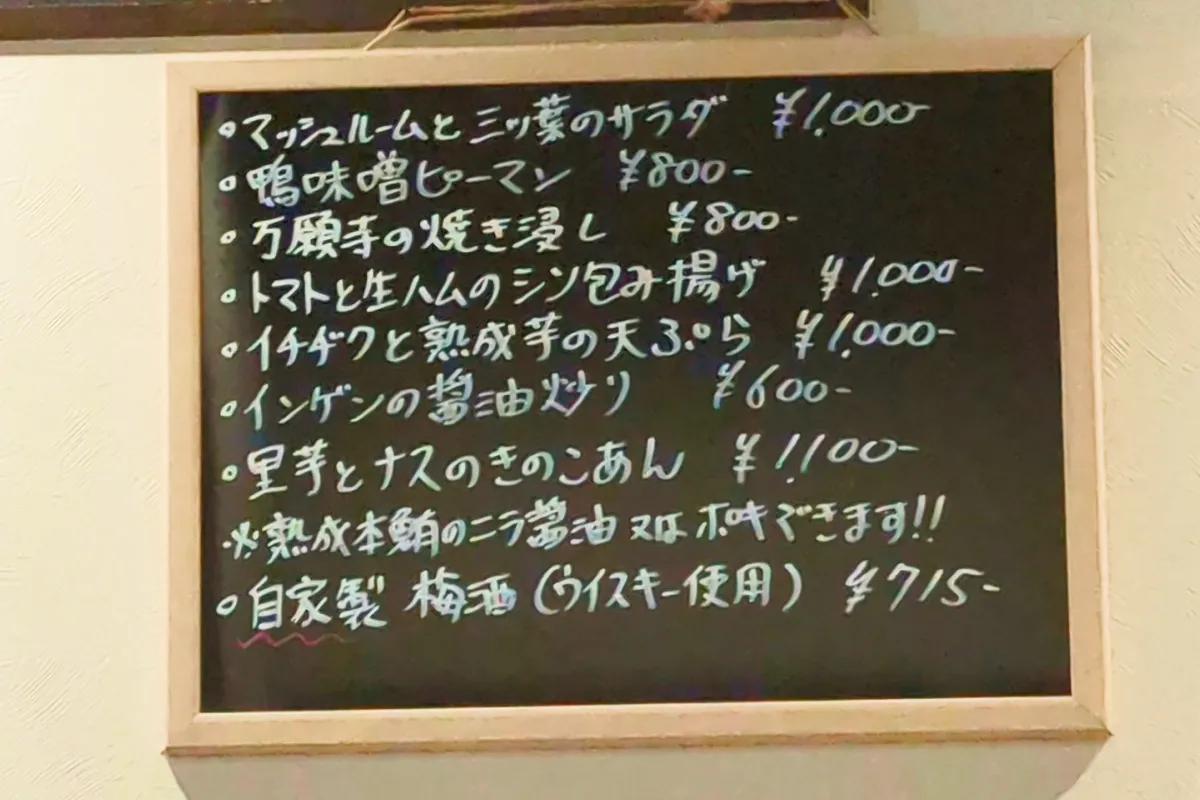 。マッシュルームと三ッ葉のサラダ ¥1,000-
。鴨味噌ピーマン ¥800-
。万願寺の焼き浸し ¥800-
。トマトと生ハムのシソ包み揚げ ¥1,000-
。イチヂクと熟成芋の天ぷら ¥1,000-
。インゲンの醤油炒り ¥600-
。里芋とナスのきのこあん ¥1,100-
※熟成本鮪のニラ醤油又はポキできます!!
。自家製 梅酒(ウイスキー使用) ¥715-